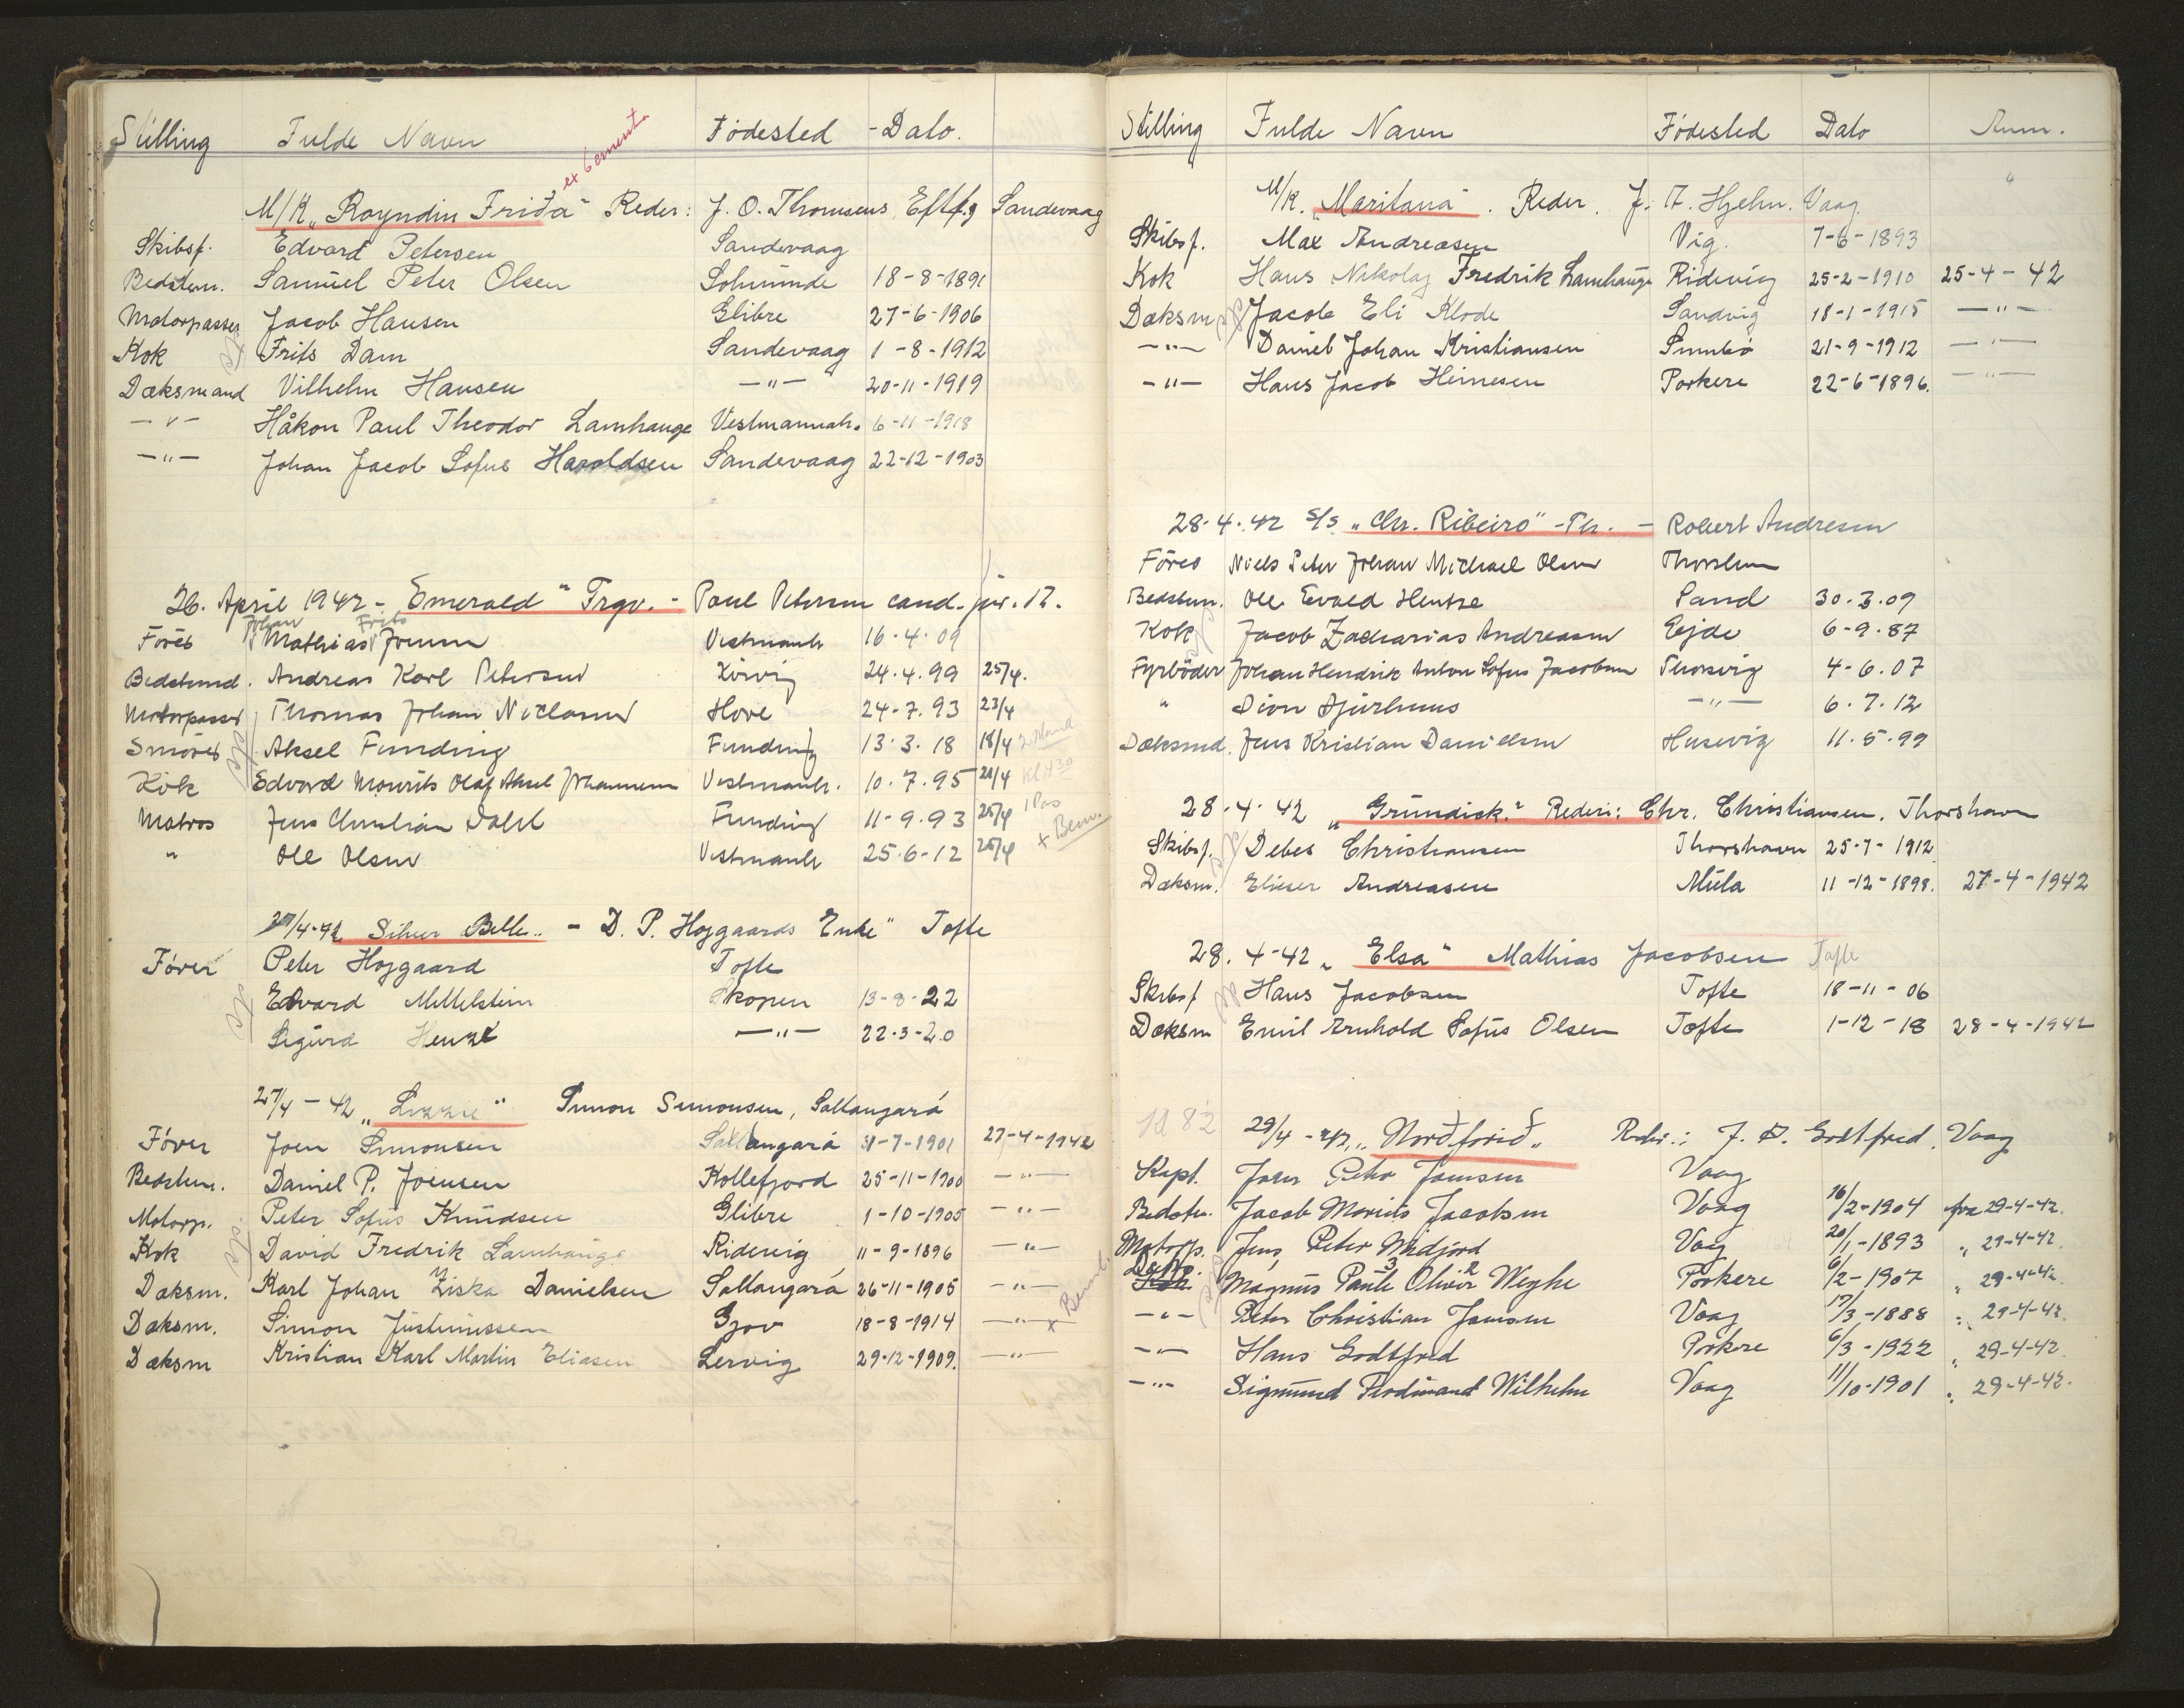 Stilling Fulde Navn Fødested - Dato.
M/K „Royndin Friða" Reder: J. O. Thomsens Eftf.g Sandevaag
Skibsf. Edvard Petersen Sandevaag
Bedstem. Samuel Peter Olsen Solmunde 18-8-1891
Motorpasser Jacob Hansen Glibre 27-6-1906
Kok Frits Dam Sandevaag 1-8-1912
Dæksmand Vilhelm Hansen —"— 20-11-1919
—"— Håkon Paul Theodor Lamhauge Vestmannah. 6-11-1918
—"— Johan Jacob Sofus Haraldsen Sandevaag 22-12-1903
26. April 1942 - „Emerald" Trgv. - Poul Petersen cand. jur. Th.
Johan Frits
Fører Mathias Joensen Vestmanh 16-4-09
Bedstmd. Andreas Karl Petersen Kvivig 24.4.99 25/4.
Motorpasser Thomas Johan Niclasen Hove 24-7.93 23/4
Smører Aksel Funding Funding 13.3.18 18/4
Kok Edvard Mourits Olaf Aksel Johannesen Vestmanh. 10.7.95 21/4 Kl. 4 30
Matros Jens Christian Dahl Funding 11-9.93 25/4 1 Pas
" Ole Olsen Vestmanh 25.6-12 25/4 + Bem.
27/4-42 „Silver Belle" - D. P. Højgaards Enke" Tofte
Fører Peter Højgaard Tofte
Edvard Mittelstein Skopen 13-8-22
Sigurd Henze —"— 22-3-20
27/4-42 „Lizzie" Simon Simonsen, Saltangará
Fører Joen Simonsen Saltangará 31-7-1901 27-4-1942
Bedstem. Daniel P. Joensen Kollefjord 25-11-1900 —"—
Motorp. Peter Sofus Knudsen Glibre 1-10-1905 —"—
Kok David Fredrik Lamhauge Ridevig 11-9-1896 —"—
Dæksm. Karl Johan Ziska Danielsen Saltangará 26-11-1905 —"—
Dæksm. Simon Justinussen Gjov 18-8-1914 —"—
Dæksm Kristian Karl Martin Eliasen Lervig 29-12-1909. —"—
Stilling Fulde Navn Fødested Dato Anm.
M/K. „Maritana". Reder. J. F. Hjelm. Vaag.
Skibsf. Max Andreasen Vig. 7-6-1893
Kok Hans Nikolaj Fredrik Lamhauge Ridevig 25-2-1910 25-4-42
Dæksm Jacob Eli Klode Sandvig 18-1-1915 —"—
—"— Daniel Johan Kristiansen Sumbø 21-9-1912 —"—
—"— Hans Jacob Heinesen Porkere 22-6-1896. —"—
28.4.42 S/S „Chr. Ribeiro" - Th. - Robert Andresen
Fører Niels Peter Johan Michael Olsen Thorshavn
Bedstem. Ole Evald Hentze Sand 30.3.09
Kok Jacob Zacharias Andreasen Ejde 6-9.87
Fyrbøder Johan Hendrik Anton Sofus Jacobsen Thorsvig 4-6.07
" Dion Djurhuus —"— 6.7.12
Dæksmd. Jens Kristian Danielsen Husevig 11.5.99
28-4-42 „Grundick." Rederi: Chr. Christiansen. Thorshavn
Skibsf. Debes Christiansen Thorshavn 25-7-1912
Dæksm. Elieser Andreasen Múla 11-12-1898. 27-4-1942
28.4-42 „Elsa" Mathias Jacobsen Tofte
Skibsf Hans Jacobsen Tofte 18-11-06
Dæksm Emil Arnhold Sofus Olsen Tofte 1-12-18 28-4-1942
29/4-42 „Norðforið" Reder.: J. D. Godtfred. Vaag
Kapt. Joen Peter Joensen Vaag
Bedstm. Jacob Morits Jacobsen Vaag 16/2-1904 fra 29-4-42.
Motorp. Jens Peter Midjord Vaag 20/1-1893 " 29-4-42
Magnus Paule Oliver Weyhe Porkere 6/2-1907 " 29-4-42
—"— Peter Christian Joensen Vaag 17/3-1888 " 29-4-42.
—"— Hans Godtfred Porkere 6/3-1922 " 29-4-42
—"— Sigmund Ferdinand Wilhelm Vaag 11/10-1901 " 29-4-42.